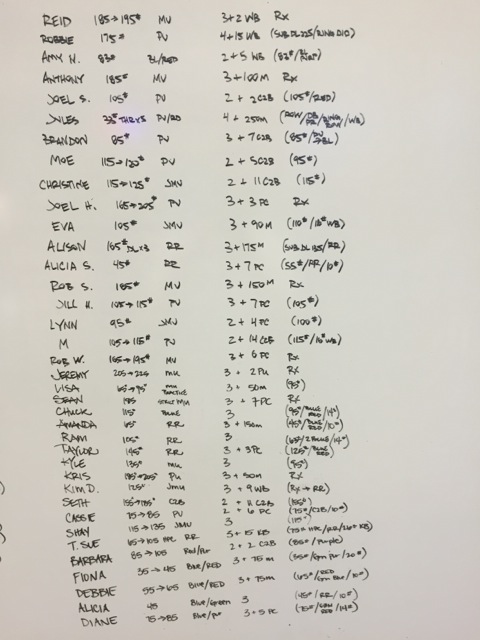 REID 185→195# MV 3+2 WB Rx
ROBBIE 175# PV 4+15 WB (SUB DL 225/RING DIP)
AMY H. 83# BL/RED 2+5 WB (83#/
ANTHONY 185# MV 3+100M Rx
JOEL S. 105# PV 2+2 C2B (105#/RED)
JULES 33# PV/RD 4+250M (ROW/ /WB)
BRANDON 85# PV 3+7 C2B (85#/
MOE 115→120# PV 2+5 C2B (95#)
CHRISTINE 115→125# JMV 2+11 C2B (115#)
JOEL H. 165→205# PV 3+3 PC Rx
EVA 105# JMV 3+90M (110#/10# WB)
ALISON 165# DL×3 RR 3+175M (SUB DL 135/RR)
ALICIA S. 45# RR 3+7 PC (55#/RR/10#)
ROB S. 185# MV 3+150M Rx
JILL H. 105→115# PV 3+7 PC (105#)
LYNN 95# JMV 2+4 PC (100#)
M 105→115# PV 2+14 C2B (115#/10# WB)
ROB W. 165→195# MV 3+6 PC Rx
JEREMY 205→225 MU 3+2 PU Rx
LISA 65→95# MU PRACTICE 3+50M (95#)
SEAN 185 STRICT MU 3+7 PC Rx
CHUCK 115# BLUE 3 (95#/BLUE RED/14#)
AMANDA 65# RR 3+150m (45#/BLUE RED/10#)
RAM 105# RR 3 (65#/2 BLUE/14#)
TAYLOR 145# RR 3+3 PC (125#/BLUE RED)
KYLE 135# MU 3 (95#)
KRIS 185→205# PU 3+50M Rx
KIM D. 125# JMU 3+9 WB (Rx→RR)
SETH 155→185# C2B 2+11 C2B (155#)
CASSIE 75→85 PU 2+6 PC (75#/C2B/10#)
SHAY 115→135 JMU 3 (115#
T. SUE 65→105 HPC RR 3+15 KB (75# HPC/RR/26# KB)
BARBARA 85→105 Red/Pur 2+2 C2B (85#/Purple)
FIONA 35→45 Blue/RED 3+75m (35#/Grn Pur/20#)
DEBBIE 55→65 Blue/RED 3+75m (65#/RED Grn Blue/10#)
ALICIA 45 Blue/Green 3 (45#/RR/10#)
DIANE 75→85 Blue/pur 3+5 PC (75#/ RED/14#)